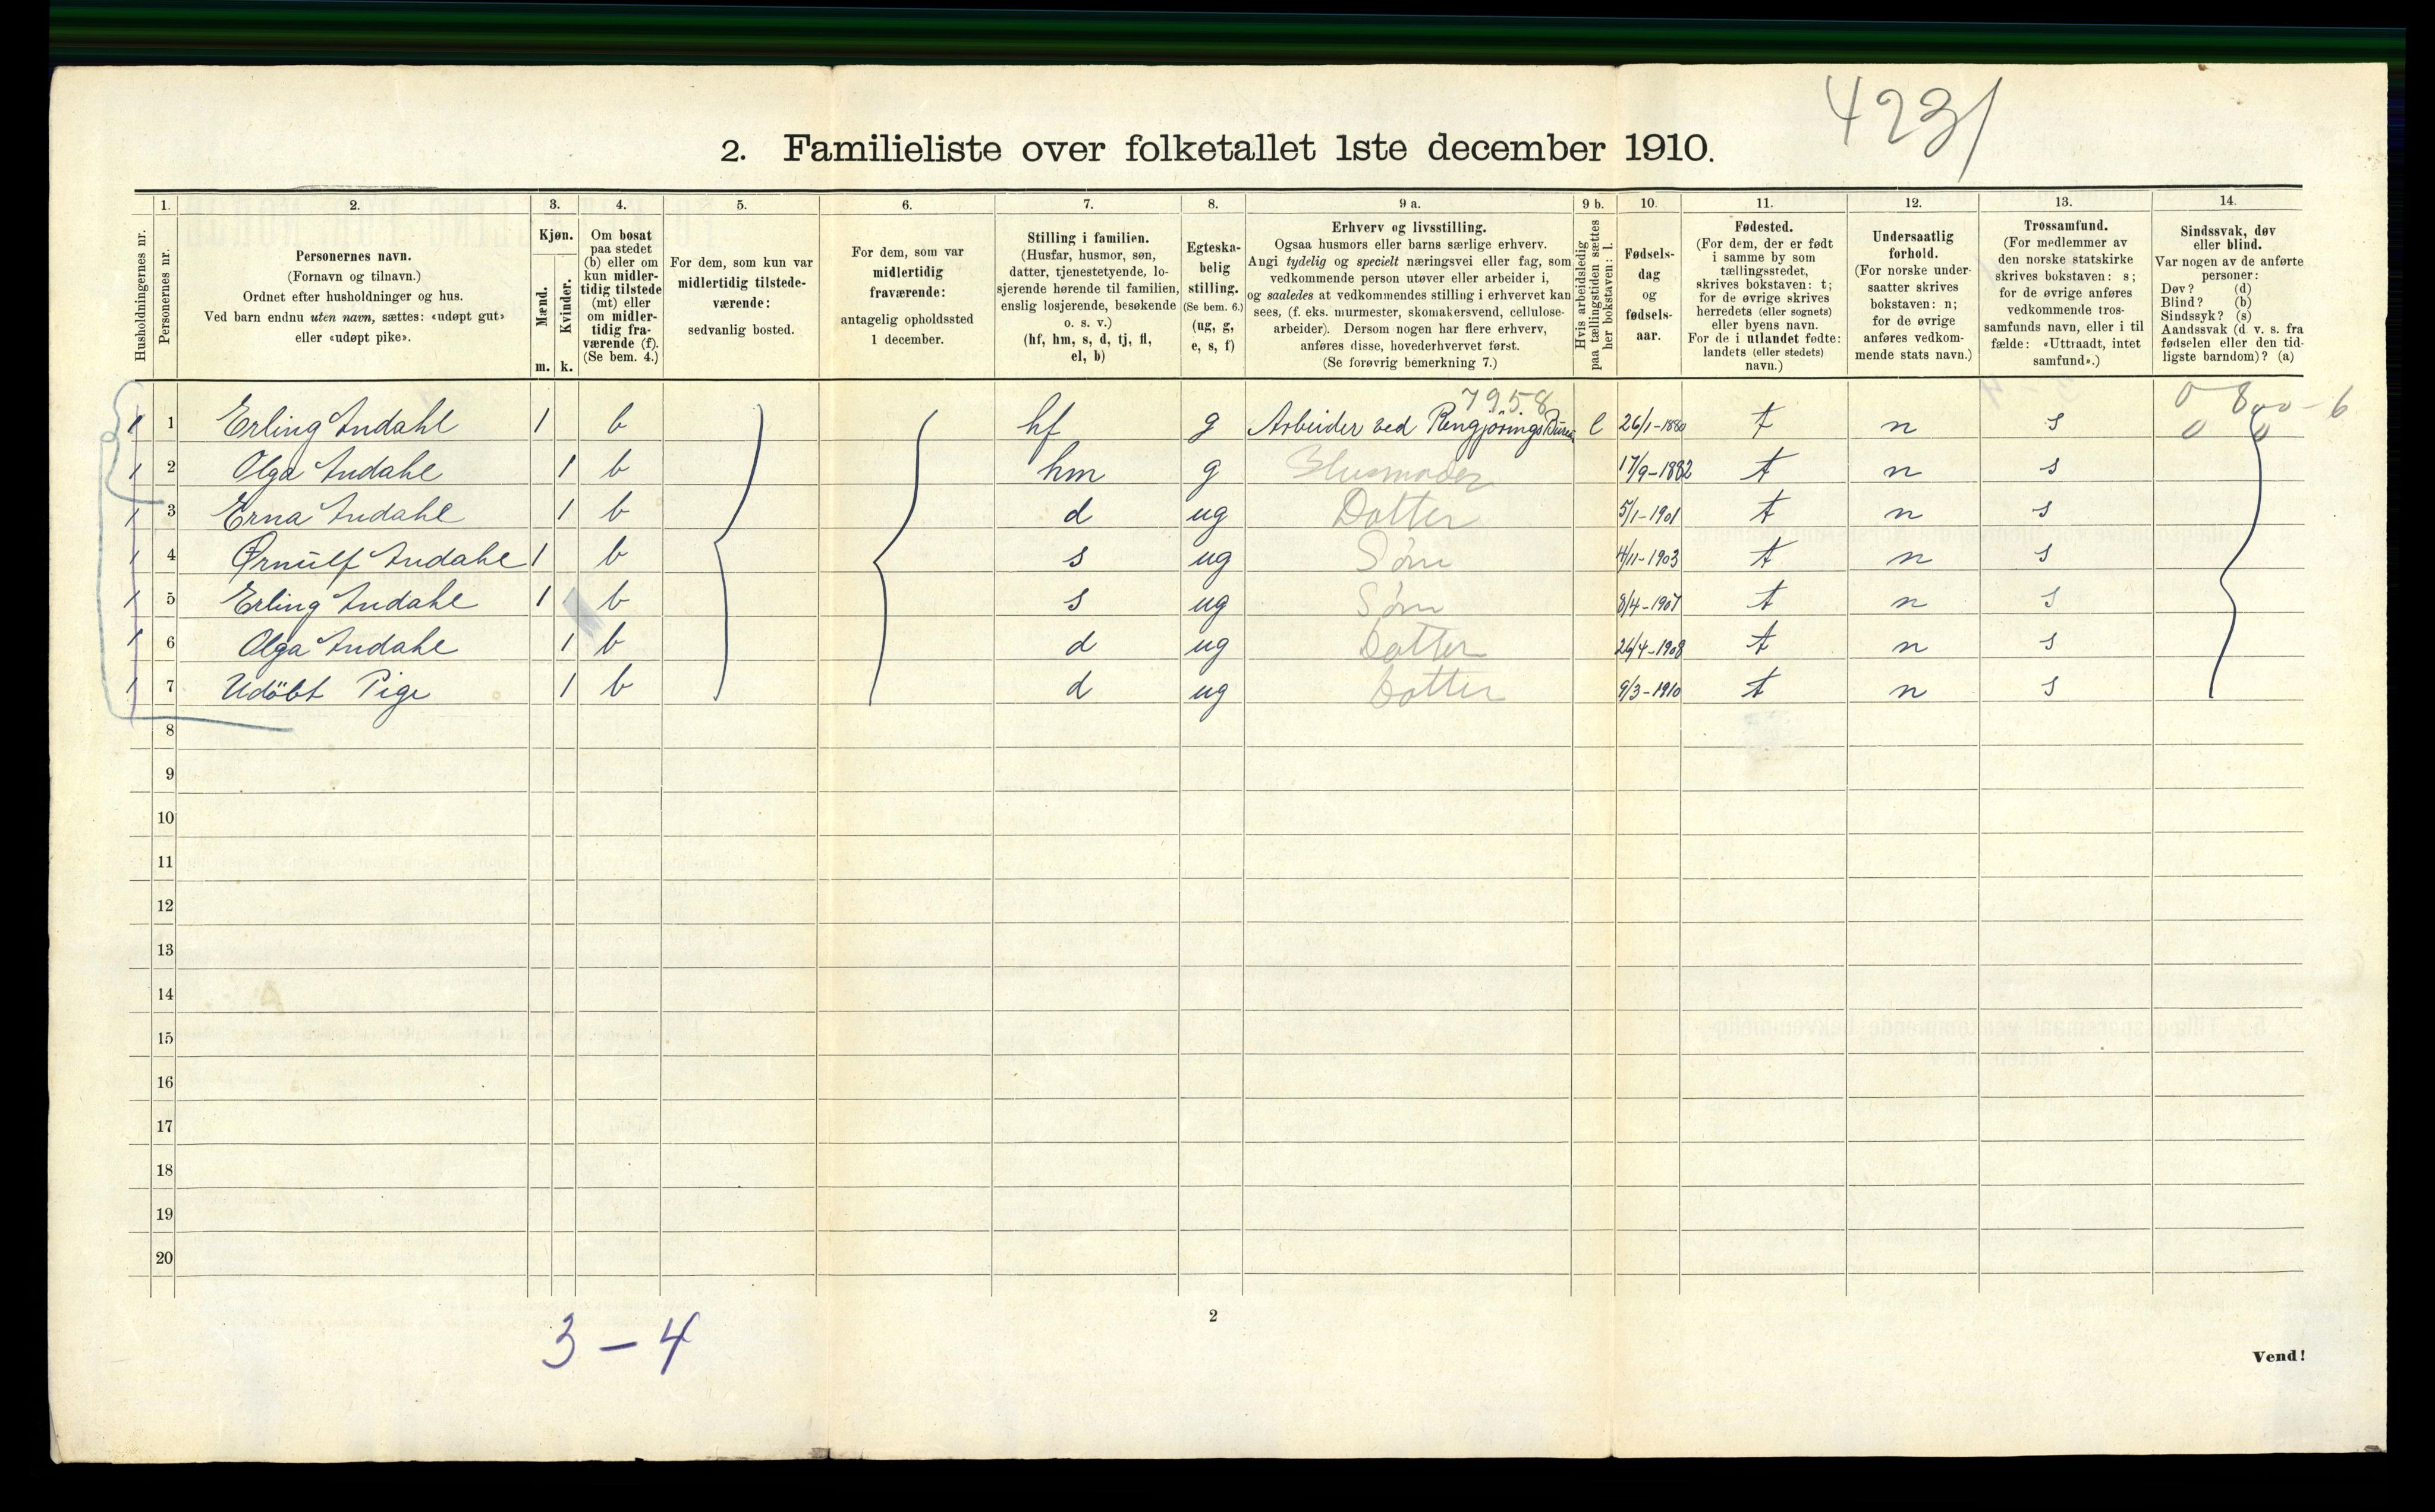 4231
2. Familieliste over folketallet 1ste december 1910.
1. 2. 3. 4. 5. 6. 7. 8. 9 a. 9 b. 10. 11. 12. 13. 14.
Husholdningernes nr.
Personernes nr.
Personernes navn.
(Fornavn og tilnavn.)
Ordnet efter husholdninger og hus.
Ved barn endnu uten navn, sættes: «udøpt gut»
eller «udøpt pike».
Kjøn.
Mænd.
m.
Kvinder.
k.
Om bosat
paa stedet
(b) eller om
kun midler-
tidig tilstede
(mt) eller
om midler-
tidig fra-
værende (f).
(Se bem. 4.)
For dem, som kun var
midlertidig tilstede-
værende:
sedvanlig bosted.
For dem, som var
midlertidig
fraværende:
antagelig opholdssted
1 december.
Stilling i familien.
(Husfar, husmor, søn,
datter, tjenestetyende, lo-
sjerende hørende til familien,
enslig losjerende, besøkende
o. s. v.)
(hf, hm, s, d, tj, fl,
el, b)
Egteska-
belig
stilling.
(Se bem. 6.)
(ug, g,
e, s, f)
Erhverv og livsstilling.
Ogsaa husmors eller barns særlige erhverv.
Angi tydelig og specielt næringsvei eller fag, som
vedkommende person utøver eller arbeider i,
og saaledes at vedkommendes stilling i erhvervet kan
sees, (f. eks. murmester, skomakersvend, cellulose-
arbeider). Dersom nogen har flere erhverv,
anføres disse, hovederhvervet først.
(Se forøvrig bemerkning 7.)
Hvis arbeidsledig
paa tællingstiden sættes
her bokstaven: l.
Fødsels-
dag
og
fødsels-
aar.
Fødested.
(For dem, der er født
i samme by som
tællingsstedet,
skrives bokstaven: t;
for de øvrige skrives
herredets (eller sognets)
eller byens navn.
For de i utlandet fødte:
landets (eller stedets)
navn.)
Undersaatlig
forhold.
(For norske under-
saatter skrives
bokstaven: n;
for de øvrige
anføres vedkom-
mende stats navn.)
Trossamfund.
(For medlemmer av
den norske statskirke
skrives bokstaven: s;
for de øvrige anføres
vedkommende tros-
samfunds navn, eller i til
fælde: «Uttraadt, intet
samfund».)
Sindssvak, døv
eller blind.
Var nogen av de anførte
personer:
Døv? (d)
Blind? (b)
Sindssyk? (s)
Aandssvak (d. v. s. fra
fødselen eller den tid-
ligste barndom)? (a)
7958
1 1 Erling Indahl 1 b hf g Arbeider ved Rengjørings Bureau l 26/1-1880 t n s
1 2 Olga Indahl 1 b hm g Husmoder 17/9-1882 t n s
1 3 Erna Indahl 1 b d ug Datter 5/1-1901 t n s
1 4 Ørnulf Indahl 1 b s ug Søn 4/11-1903 t n s
1 5 Erling Indahl 1 b s ug Søn 8/4-1907 t n s
1 6 Olga Indahl 1 b d ug Datter 26/4-1908 t n s
1 7 Udöbt Pige 1 b d ug Datter 9/3-1910 t n s
8
9
10
11
12
13
14
15
16
17
18
19
20
2
3-4
Vend!